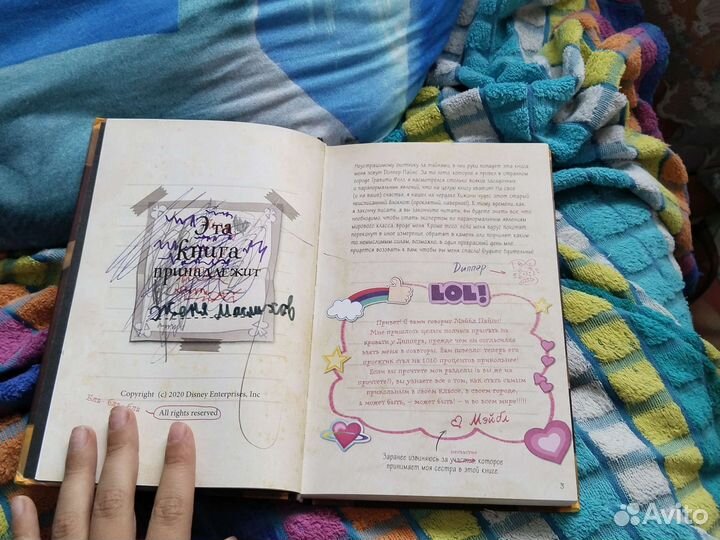 Эта
книга
принадлежит
Женя
Copyright (c) 2020 Disney Enterprises, Inc
Бла-бла-бла
All rights reserved
Неустрашимому охотнику за тайнами, в чьи руки попадет эта книга:
меня зовут Диппер Пайнс. За то лето, которое я провел в странном
городе Гравити Фолз, я насмотрелся столько всяких загадочных
и паранормальных явлений, что на целую книгу хватит! На свое
(и на ваше) счастье, я нашел на чердаке Хижины чудес этот старый
неисписанный блокнот (проклятый, наверное). К тому времени, как
я закончу писать, а вы закончите читать, вы будете знать все, что
необходимо, чтобы стать экспертом по паранормальным явлениям
мирового класса, вроде меня. Кроме того, если меня вдруг похитят,
перекинут в иное измерение, обратят в камень или поглотят какие-
то немыслимые силы, возможно, в один прекрасный день мне
придется воззвать к вам, чтобы вы меня спасли! Будьте бдительны!
Диппер
LOL!
Привет! С вами говорит Мэйбл Пайнс!
Мне пришлось целых полчаса прыгать на
кровати у Диппера, прежде чем он согласился
взять меня в соавторы. Вам повезло: теперь его
проектик стал на 1010 процентов прикольнее!
Если вы прочтете мои разделы (а вы их
прочтете!), вы узнаете все о том, как стать самым
прикольным в своем классе, в своем городе,
а может быть, – может быть! – и во всем мире!!!!!
Мэйбл
Заранее извиняюсь за участие, которое
принимает моя сестра в этой книге
3
Avito